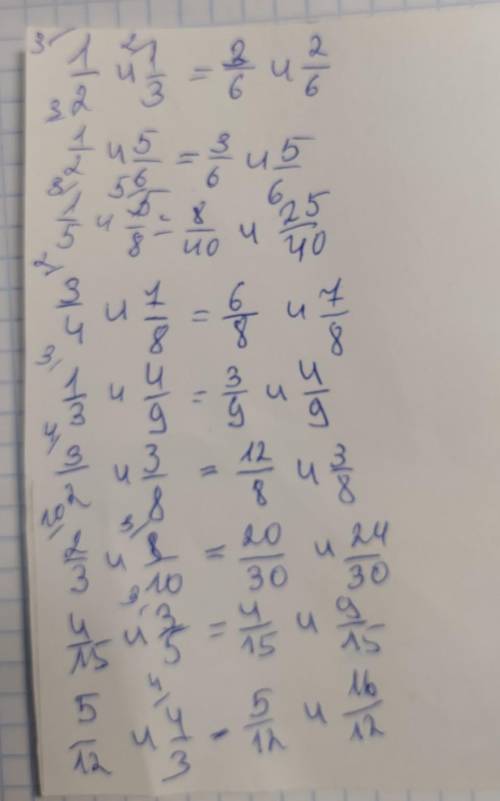 3/ 1/2 и 2/ 1/3 = 2/6 и 2/6
3 1/2 и 5/6 = 3/6 и 5/6
8 1/5 и 5 5/8 = 8/40 и 25/40
2/ 3/4 и 7/8 = 6/8 и 7/8
3/ 1/3 и 4/9 = 3/9 и 4/9
4/ 3/2 и 3/8 = 12/8 и 3/8
10/ 2/3 и 3/ 8/10 = 20/30 и 24/30
4/15 и 3/ 3/5 = 4/15 и 9/15
5/12 и 4/ 4/3 - 5/12 и 16/12